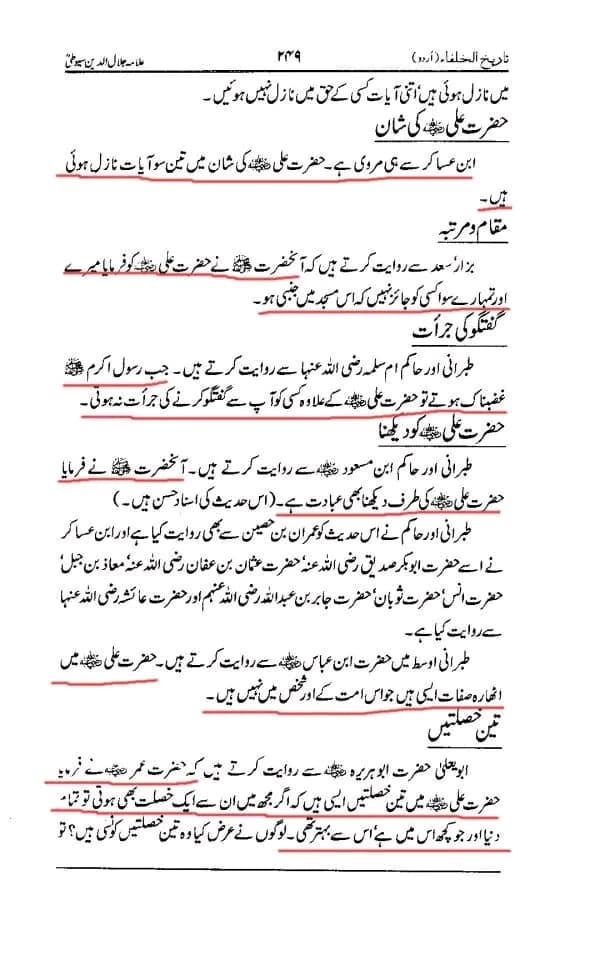 تاریخ الخلفاء (اُردو) ۲۴۹ علامہ جلال الدین سیوطیؒ
میں نازل ہوئی ہیں' اتنی آیات کسی کے حق میں نازل نہیں ہوئیں۔
حضرت علی ؓ کی شان
ابن عساکر سے ہی مروی ہے۔ حضرت علی ؓ کی شان میں تین سو آیات نازل ہوئی
ہیں۔
مقام و مرتبہ
بزار' سعد سے روایت کرتے ہیں کہ آنحضرت ﷺ نے حضرت علی ؓ کو فرمایا میرے
اور تمہارے سوا کسی کو جائز نہیں کہ اس مسجد میں جنبی ہو۔
گفتگو کی جرأت
طبرانی اور حاکم ام سلمہ رضی اللہ عنہا سے روایت کرتے ہیں۔ جب رسول اکرم ﷺ
غضبناک ہوتے تو حضرت علی ؓ کے علاوہ کسی کو آپ سے گفتگو کرنے کی جرأت نہ ہوتی۔
حضرت علی ؓ کو دیکھنا
طبرانی اور حاکم ابن مسعود ؓ سے روایت کرتے ہیں۔ آنحضرت ﷺ نے فرمایا
حضرت علی ؓ کی طرف دیکھنا بھی عبادت ہے۔ (اس حدیث کی اسناد حسن ہیں۔)
طبرانی اور حاکم نے اس حدیث کو عمران بن حصین سے بھی روایت کیا ہے اور ابن عساکر
نے اسے حضرت ابوبکر صدیق رضی اللہ عنہ' حضرت عثمان بن عفان رضی اللہ عنہ' معاذ بن جبل'
حضرت انس' حضرت ثوبان' حضرت جابر بن عبداللہ رضی اللہ عنہم اور حضرت عائشہ رضی اللہ عنہا
سے روایت کیا ہے۔
طبرانی اوسط میں حضرت ابن عباس ؓ سے روایت کرتے ہیں۔ حضرت علی ؓ میں
اٹھارہ صفات ایسی ہیں جو اس امت کے اور شخص میں نہیں ہیں۔
تین خصلتیں
ابو یعلیٰ حضرت ابو ہریرہ ؓ سے روایت کرتے ہیں کہ حضرت عمر ؓ نے فرمایا
حضرت علی ؓ میں تین خصلتیں ایسی ہیں کہ اگر مجھ میں ان سے ایک خصلت بھی ہوتی تو تمام
دنیا اور جو کچھ اس میں ہے' اس سے بہتر تھی۔ لوگوں نے عرض کیا وہ تین خصلتیں کونسی ہیں؟ تو